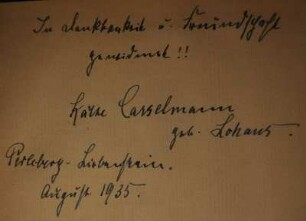 In Dankbarkeit u. Freundschaft
gewidmet!!
Käthe Casselmann
geb. Lohaus.
Perleberg-Liebenstein.
August 1935.